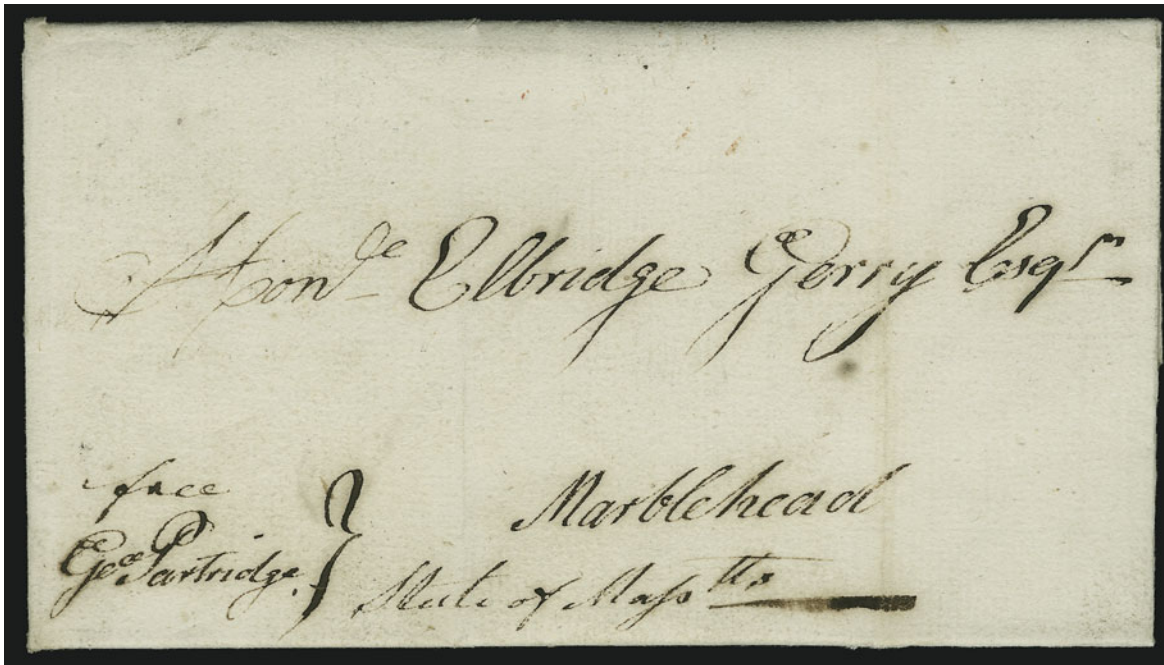 Honble Elbridge Gerry Esqr
free
Geo Partridge
Marblehead
State of Masstts